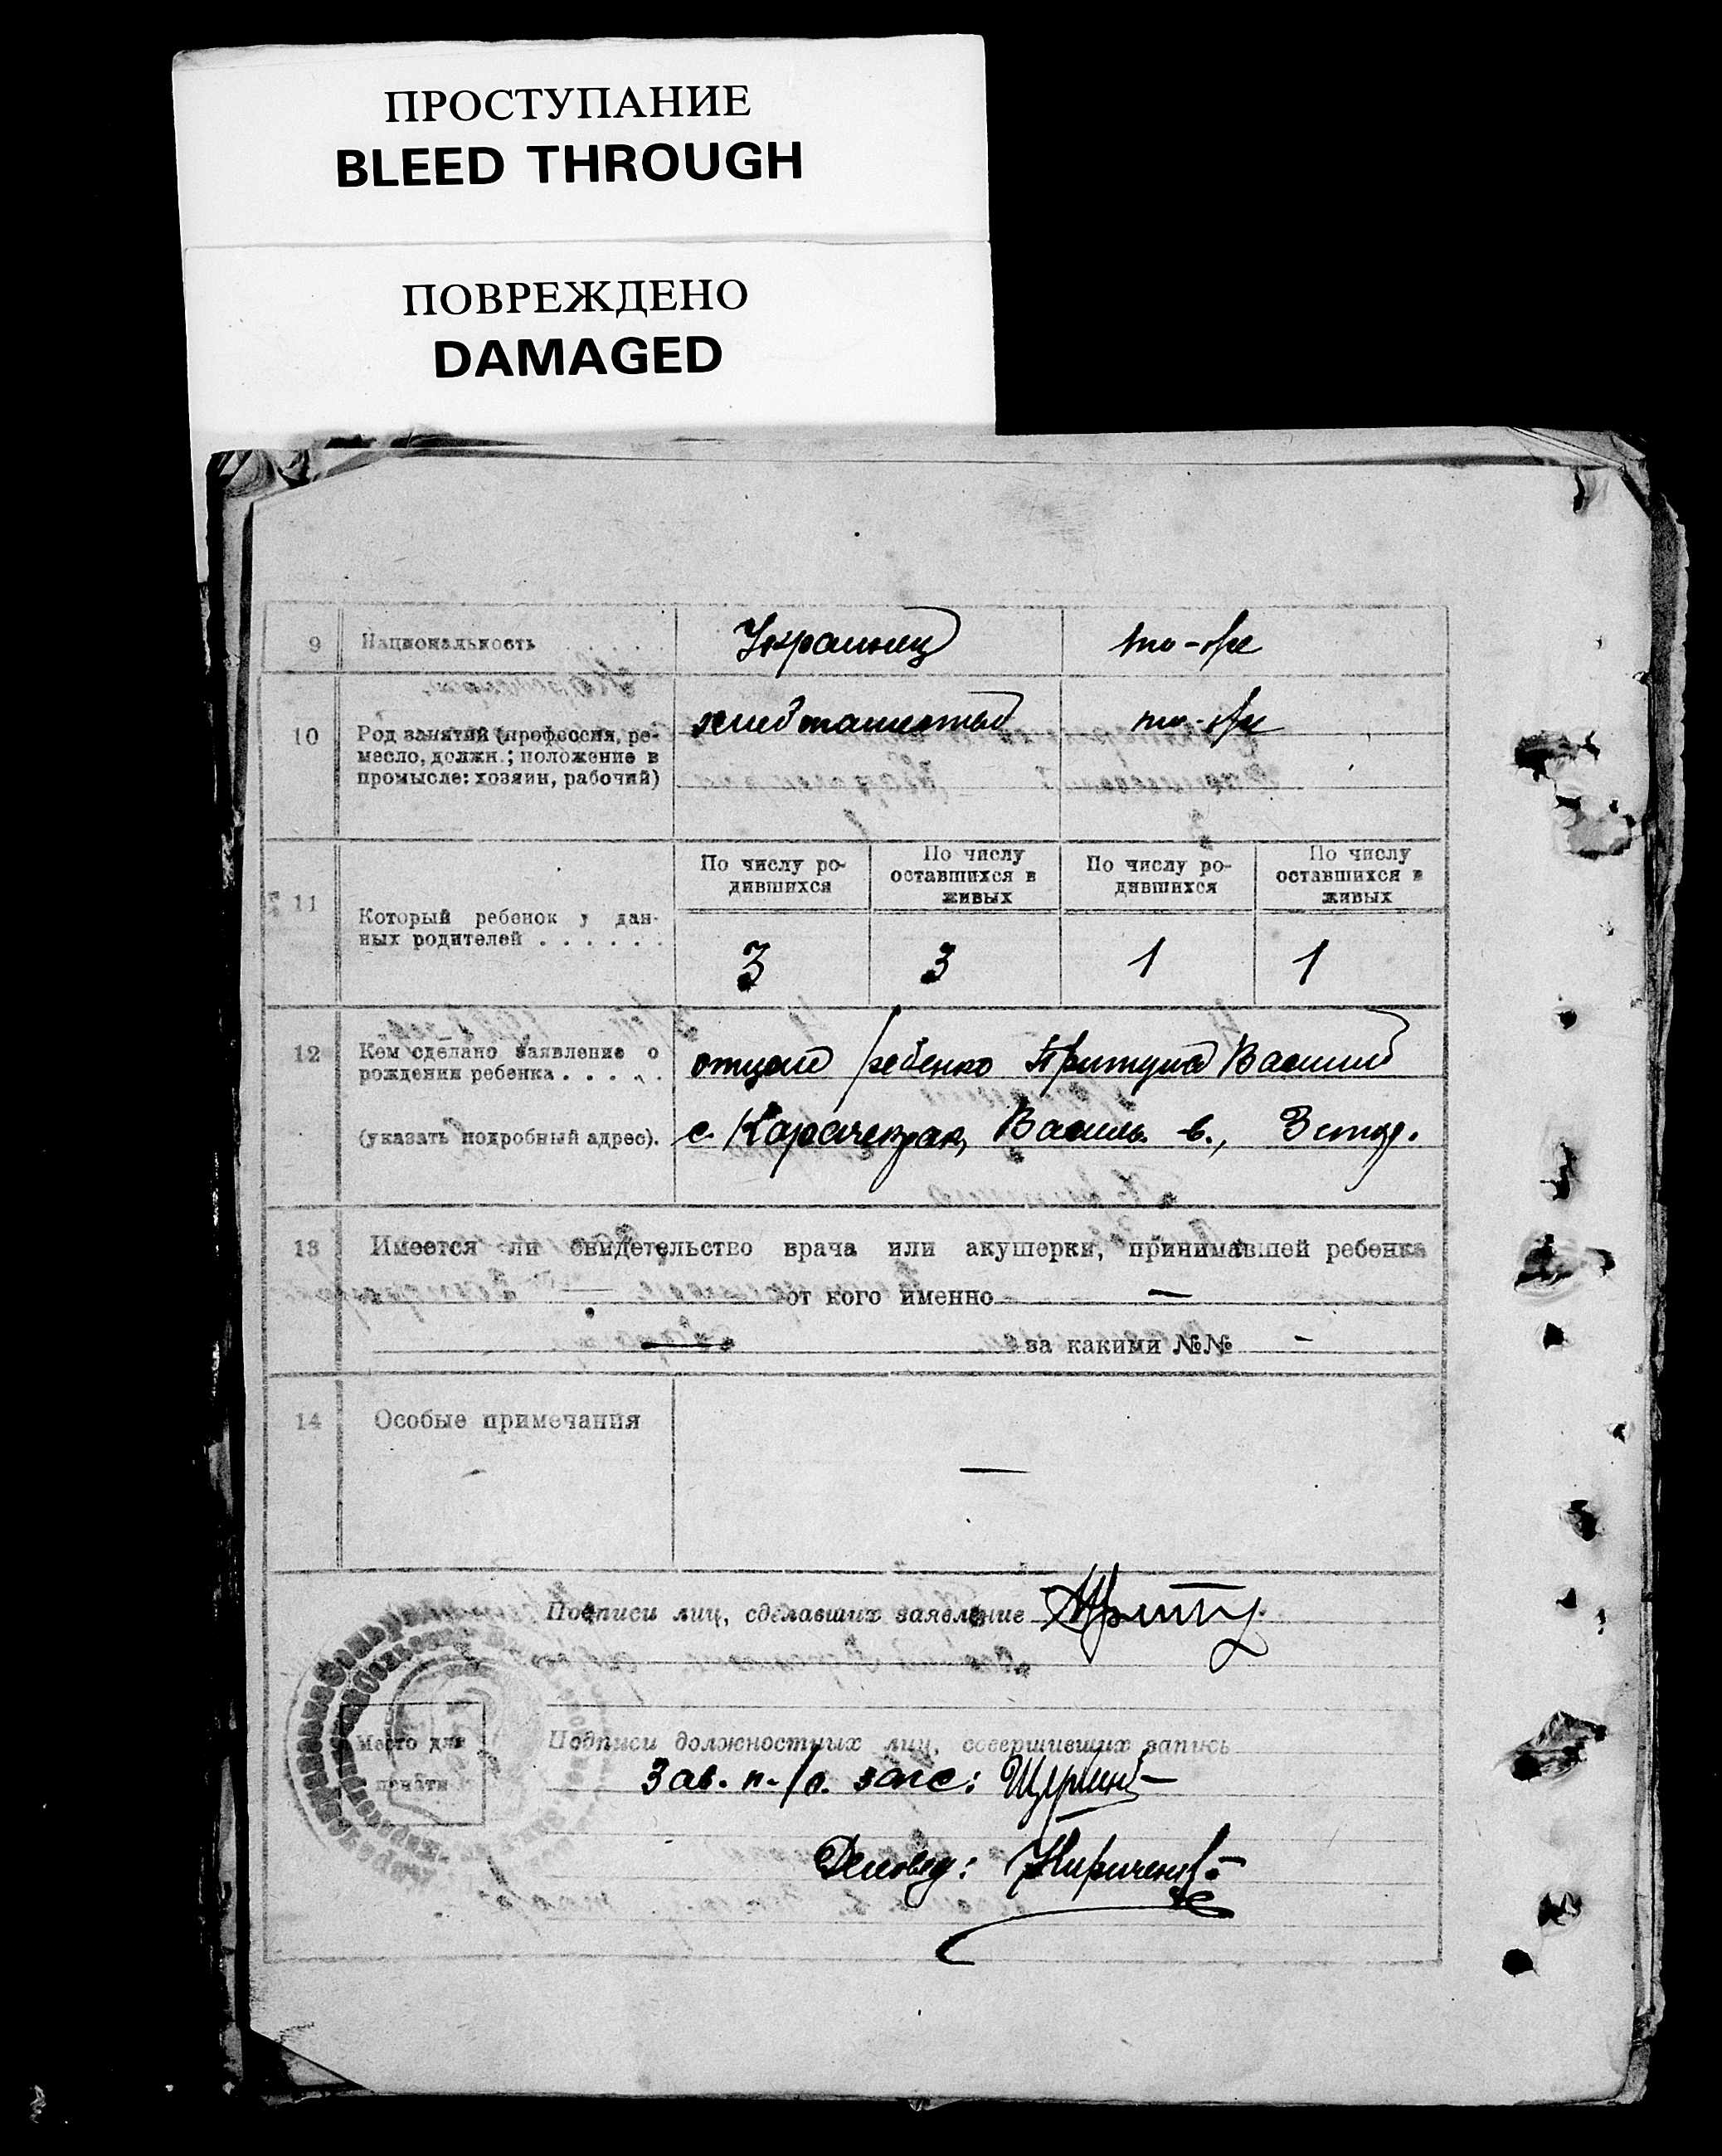 ПРОСТУПАНИЕ
BLEED THROUGH
ПОВРЕЖДЕНО
DAMAGED
9 Национальность . . . . . Украинец то-же
10 Род занятий (профессия, ре-
месло, должн.; положение в
промысле: хозяин, рабочий)
то-же
11 Который ребенок у дан-
ных родителей . . . . . .
По числу ро-
дившихся
По числу
оставшихся в
живых
По числу ро-
дившихся
По числу
оставшихся в
живых
3 3 1 1
12 Кем сделано заявление о
рождении ребенка . . . . .
(указать подробный адрес).
отцом ребенка Притула Василий
с. Карачекрак, Василь. в., Зспор.
13 Имеется ли свидетельство врача или акушерки, принимавшей ребенка
— от кого именно —
— за какими №№ —
14 Особые примечания
—
Подписи лиц, сделавших заявление
Место для
печати
Подписи должностных лиц, совершивших запись
Зав. п-/о. загс:
Деловод: Кириченко